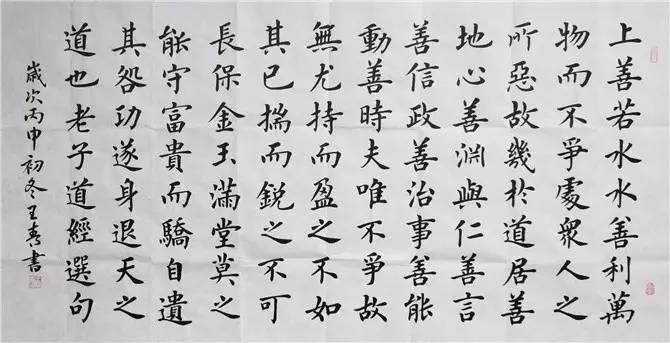 上善若水水善利萬
物而不爭處衆人之
所惡故幾於道居善
地心善淵與仁善言
善信政善治事善能
動善時夫唯不爭故
無尤持而盈之不如
其已揣而鋭之不可
長保金玉滿堂莫之
能守富貴而驕自遺
其咎功遂身退天之
道也老子道經選句
歲次丙申初冬王書